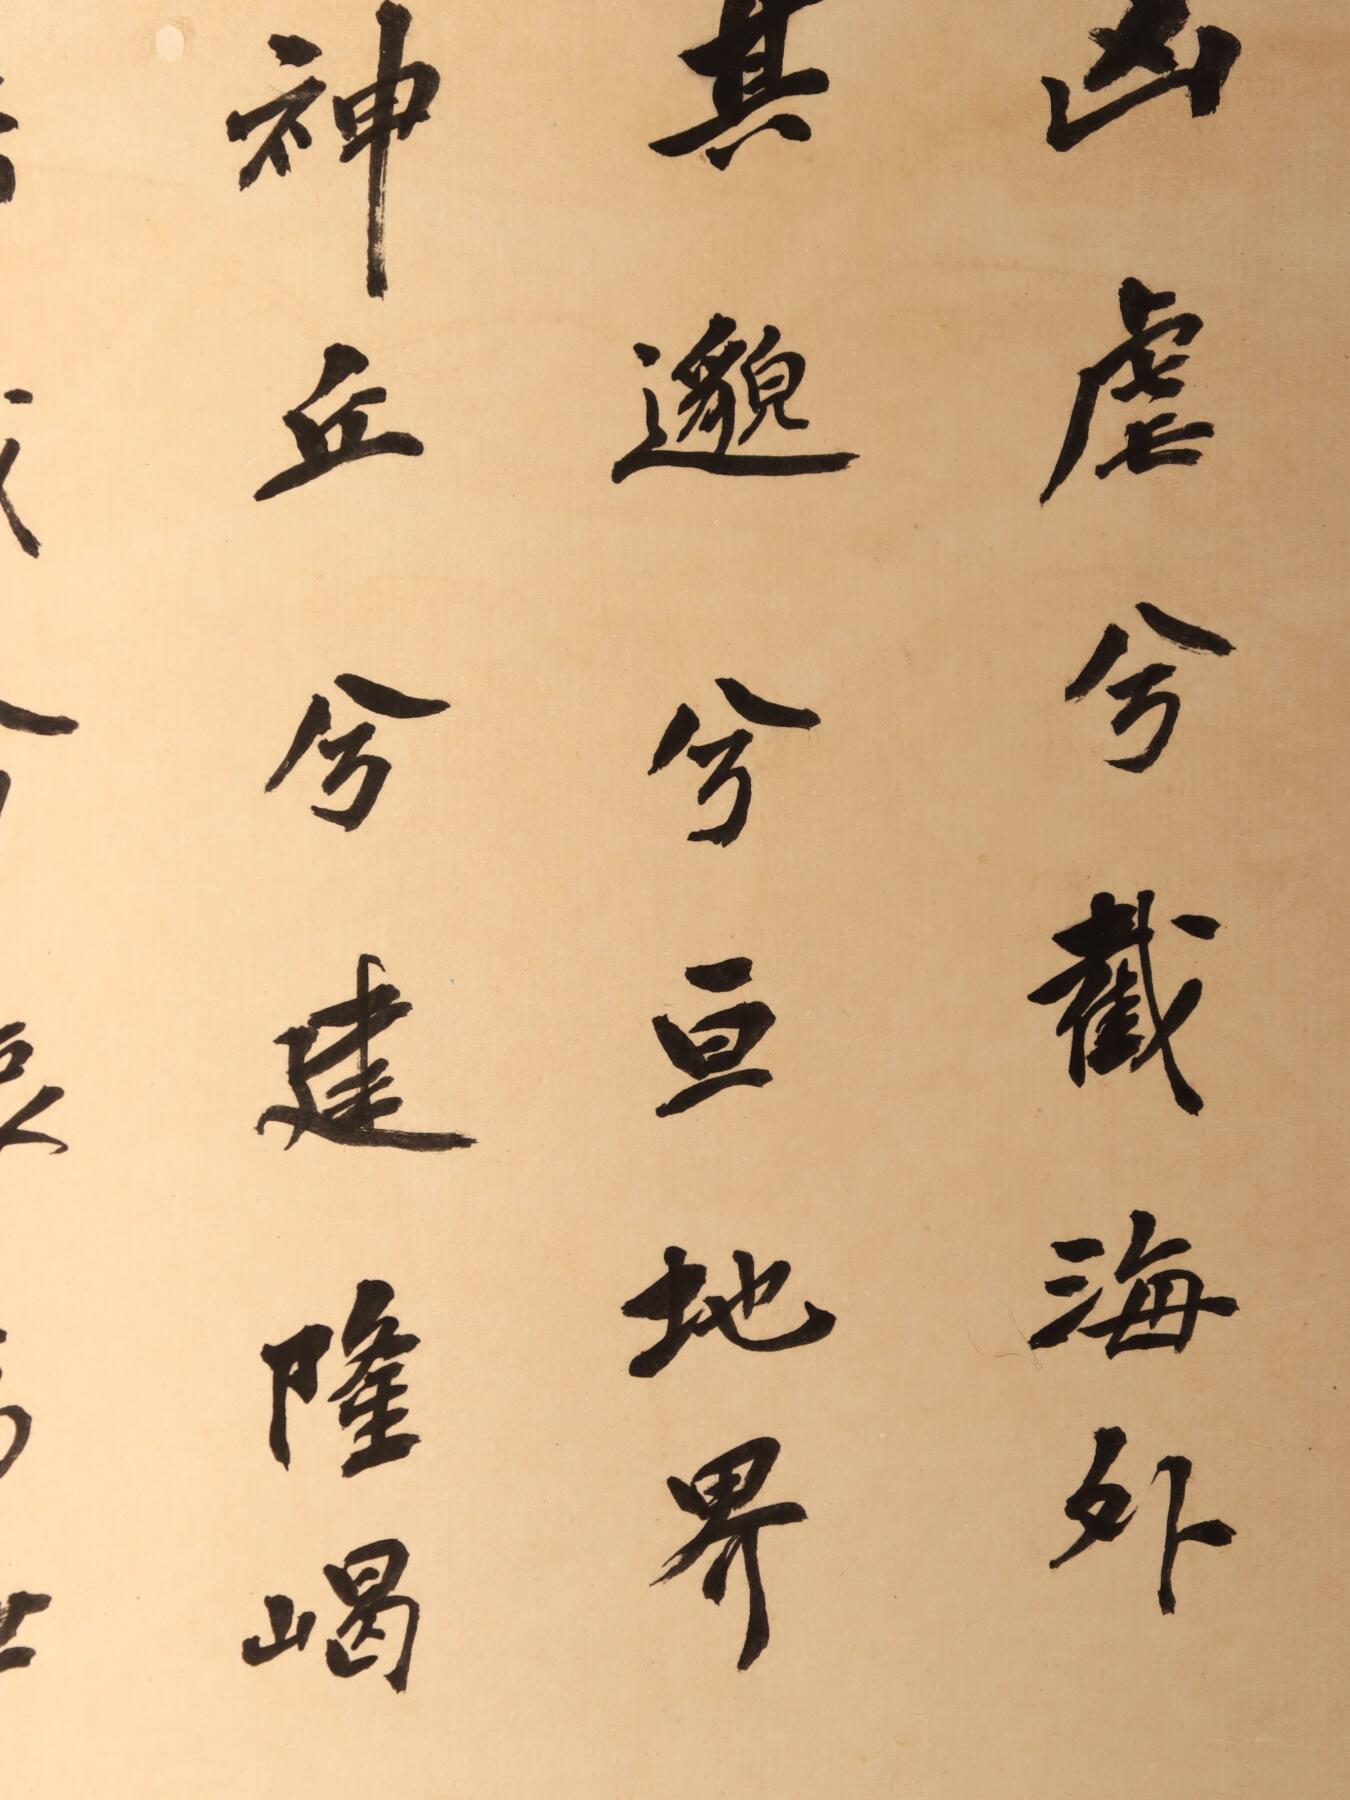 凶虐兮截海外
其邈兮亘地界
神丘兮建隆嵑